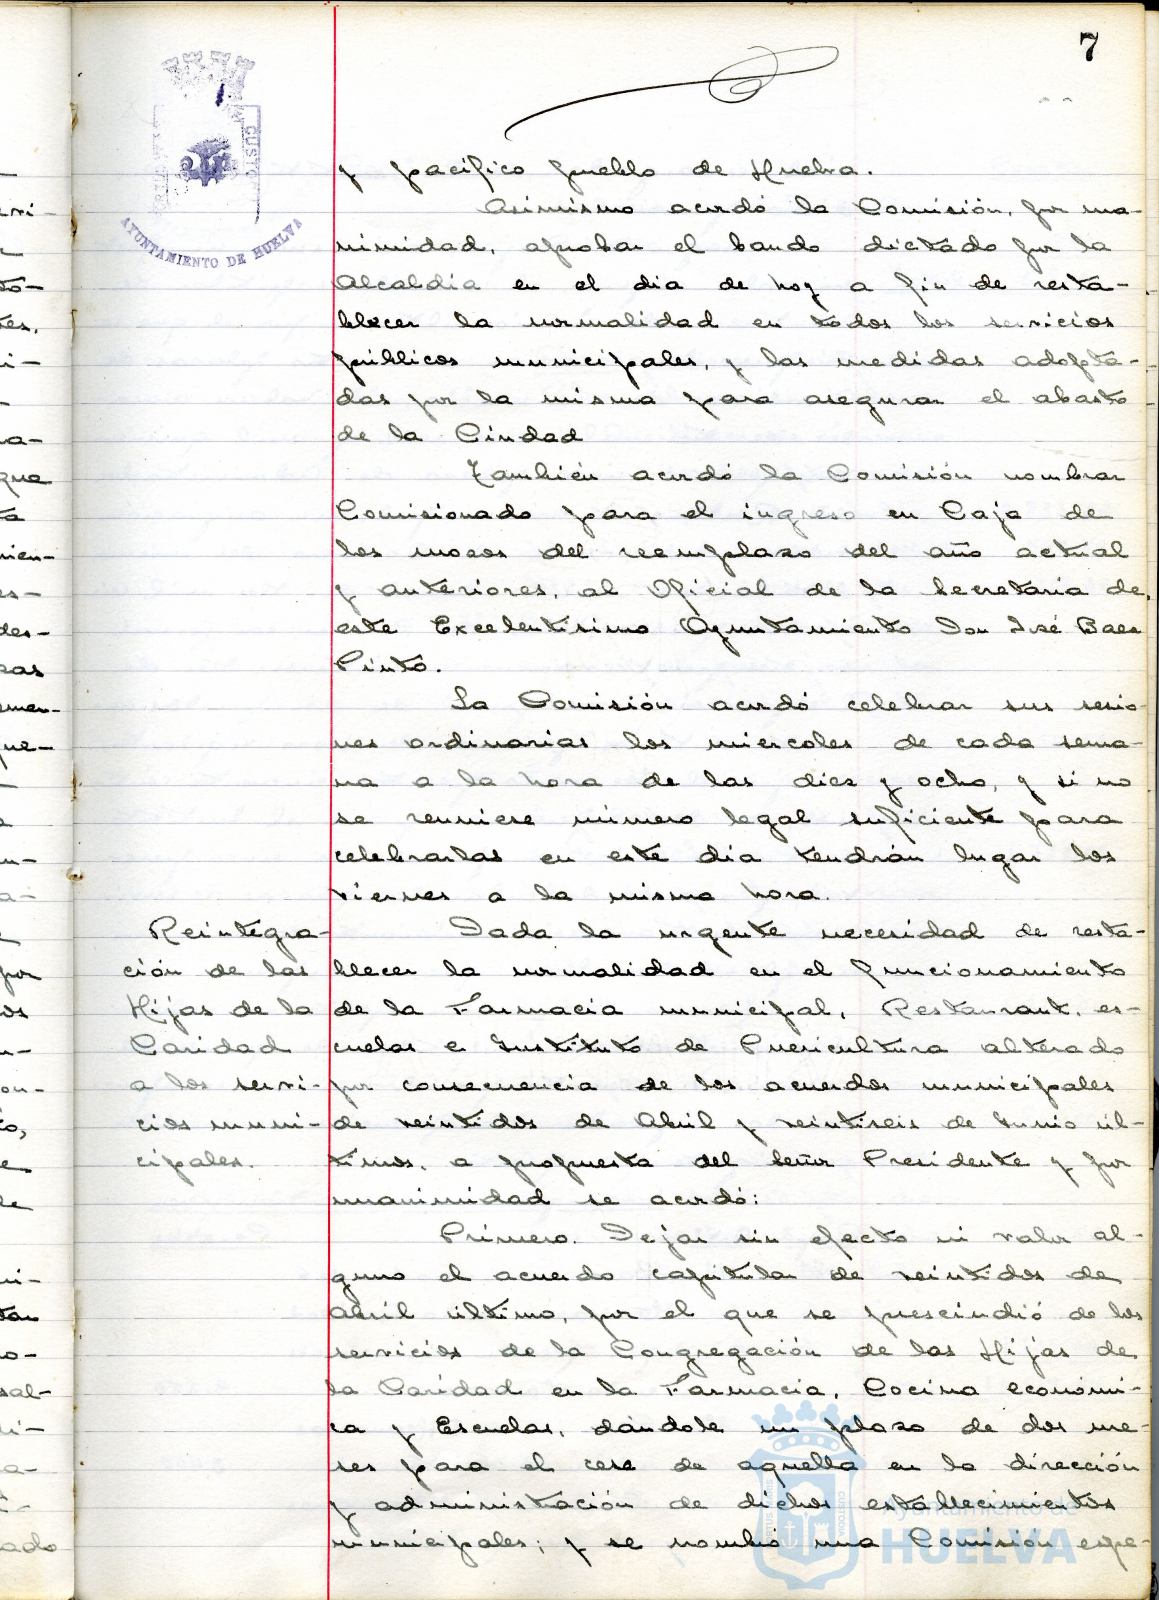 7
AYUNTAMIENTO DE HUELVA
y pacífico pueblo de Huelva.
Asimismo acordó la Comisión, por una-
nimidad, aprobar el bando dictado por la
Alcaldía en el día de hoy a fin de resta-
blecer la normalidad en todos los servicios
públicos municipales, y las medidas adopta-
das por la misma para asegurar el abasto
de la Ciudad
También acordó la Comisión nombrar
Comisionado para el ingreso en Caja de
los mozos del reemplazo del año actual
y anteriores, al Oficial de la Secretaría de
este Excelentísimo Ayuntamiento Don José Baes
Pinto.
La Comisión acordó celebrar sus sesio-
nes ordinarias los miercoles de cada sema-
na a la hora de las diez y ocho, y si no
se reuniese número legal suficiente para
celebrarlas en este día tendrán lugar los
viernes a la misma hora.
Reintegra-
ción de las
Hijas de la
Caridad
a los servi-
cios muni-
cipales.
Dada la urgente necesidad de resta-
blecer la normalidad en el funcionamiento
de la Farmacia municipal, Restaurant, es-
cuelas e Instituto de Puericultura alterado
por consecuencia de los acuerdos municipales
de veintidos de Abril y veintiseis de Junio úl-
timos, a propuesta del Señor Presidente y por
unanimidad se acordó:
Primero. Dejar sin efecto ni valor al-
guno el acuerdo capitular de veintidos de
Abril último, por el que se prescindió de los
servicios de la Congregación de las Hijas de
la Caridad en la Farmacia, Cocina económi-
ca y Escuelas, dándole un plazo de dos me-
ses para el cese de aquella en la dirección
y administración de dichos establecimientos
municipales; y se nombró una Comisión espe-
Ayuntamiento de
HUELVA